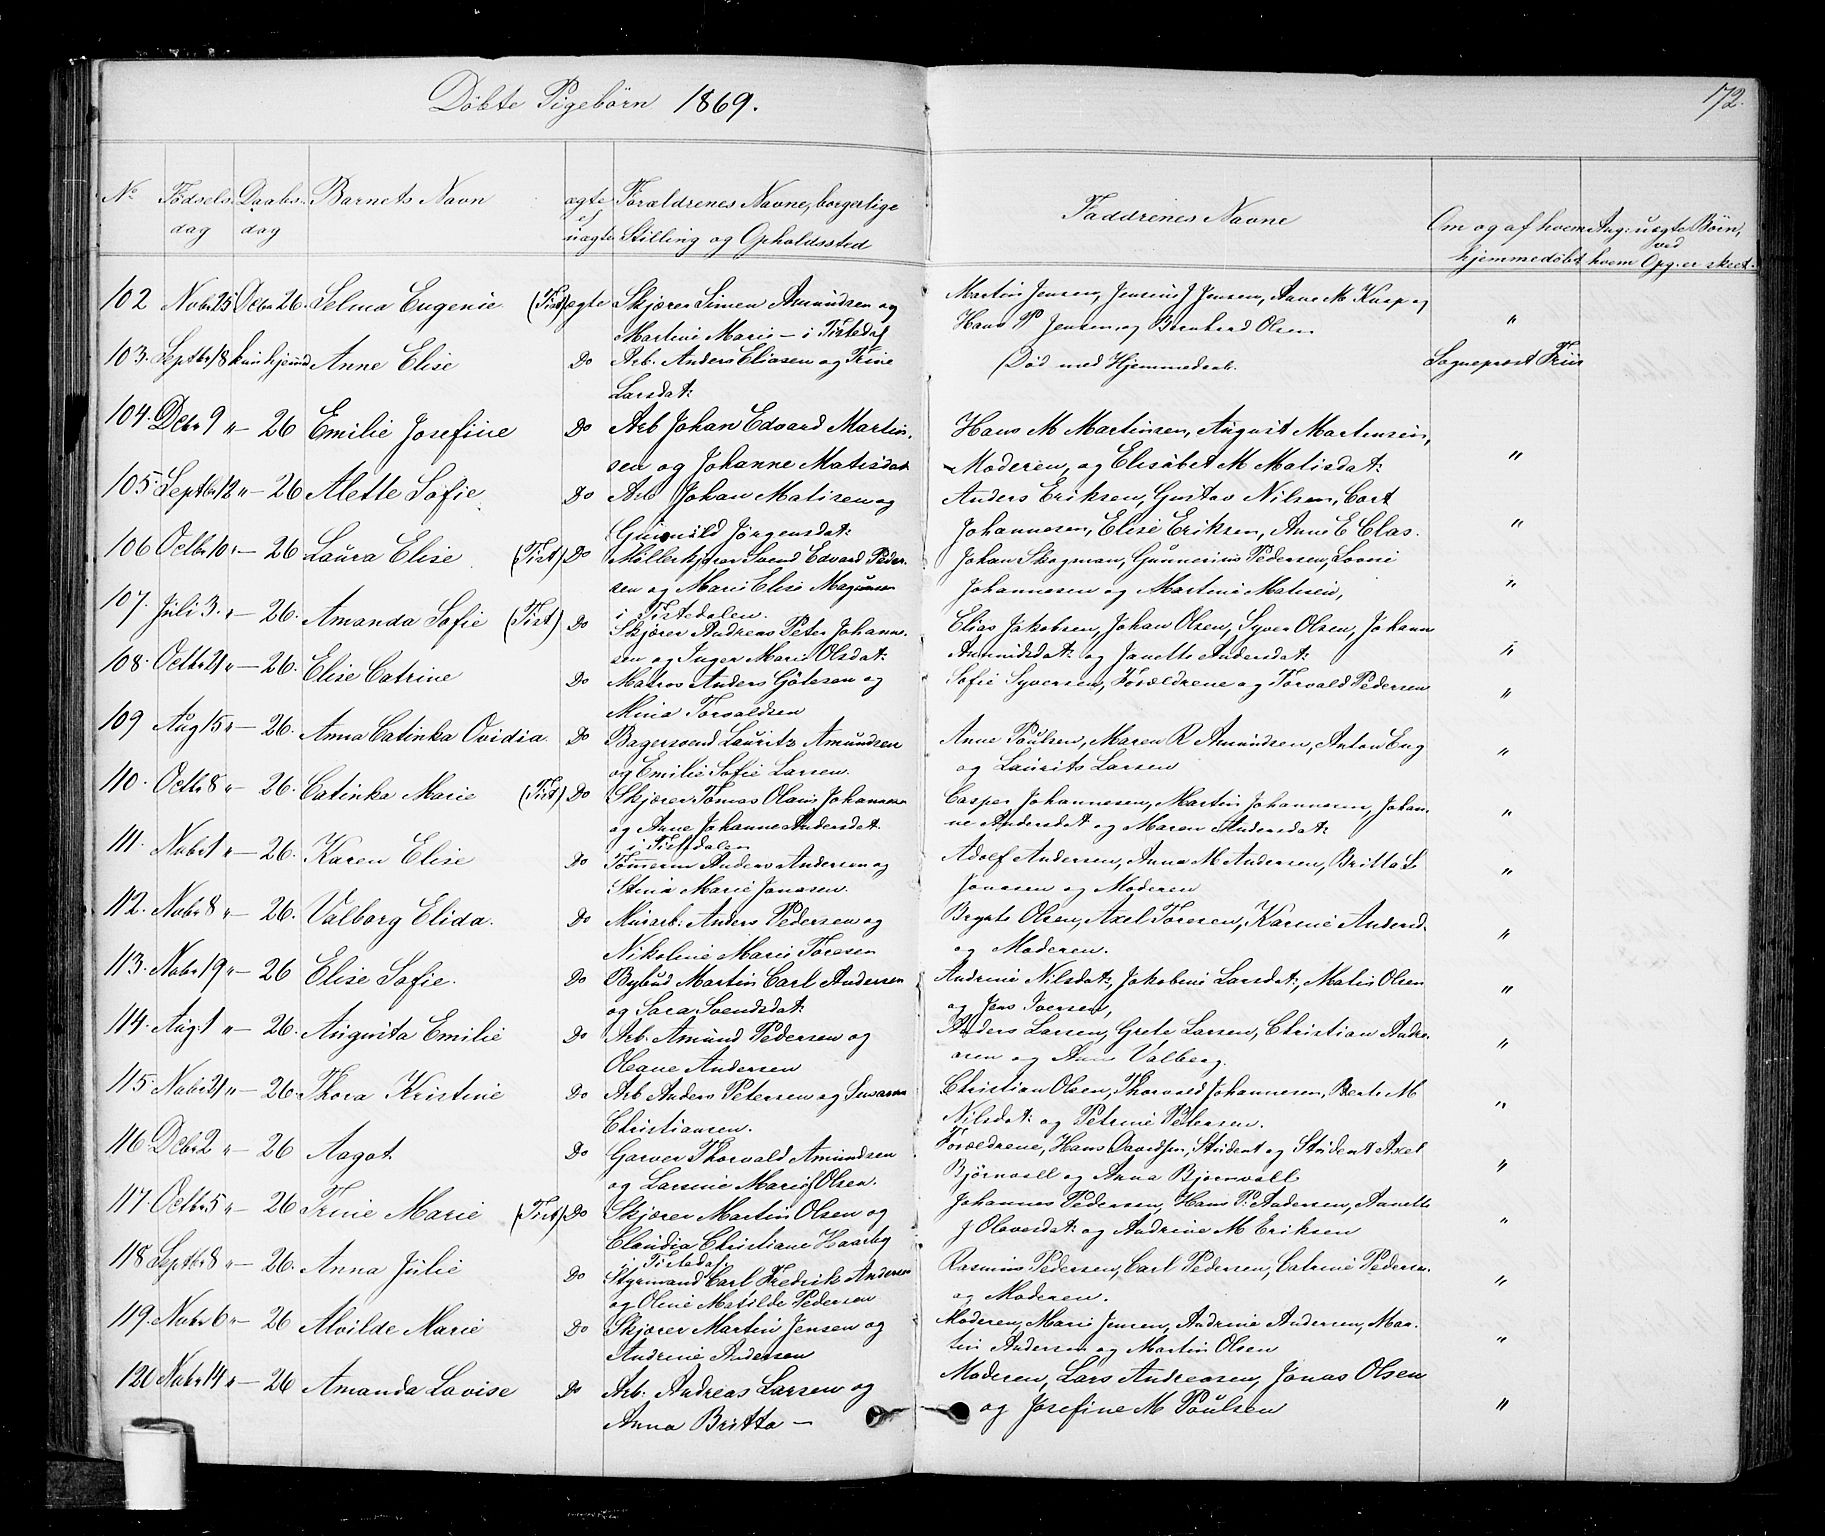 Döbte Pigebörn 1869.
172.
No Födsels Daabs Barnets Navn ægte Forældrenes Navne, borgerlige Faddrenes Navne Om og af hvem Ang: uægte Börn,
dag dag uægte Stilling og Opholdssted hjemmedöbt hvem Opg. er skeet.
102 Novbr 25 Decbr 26. Selma Eugenie (Tist) ægte Skjærer Simen Amundsen og Martin Jensen, Jensine J Jensen, Anne M Kusp og "
Martine Marie — i Tistedal Hans P Jensen og Bernhard Olsen
103. Septbr 18 kun hjemmd Anne Elise Do Arb. Anders Eliasen og Trine Död med Hjemmedaab. Sogneprest Friis
Larsdat:
104. Decbr 9 " — 26 Emilie Josefine Do Arb Johan Edvard Martin- Hans M Martinsen, August Martensen, "
sen og Johanne Matisdat Moderen, og Elisabet M Matisdat:
105. Septbr 12 " — 26 Alette Sofie Do Arb Johan Matisen og Anders Eriksen, Gustav Nilsen, Carl "
Gunnild Jörgensdat: Johannesen, Elise Eriksen, Anne E Clas.
106 Octbr 10 " — 26 Laura Elise (Tist) Do Möllerkjörer Svend Edvard Peder- Johan Skogman, Gunnerius Pedersen, Lovise "
sen og Marie Elise Magnussen Johannesen og Martine Matisen,
i Tistedalen.
107. Juli 3. " — 26. Amanda Sofie (Tist) Do Skjærer Andreas Peter Johann- Elias Jakobsen, Johan Olsen, Syver Olsen, Johann "
sen og Inger Marie Olsdat: Amundsdat: og Janette Andersdat:
108. Octbr 21 " — 26. Elise Catrine Do Matros Anders Götesen og Sofie Syversen, Forældrene og Torvald Pedersen "
Mina Torvaldsen
109 Aug 15 " — 26. Anna Catinka Ovidia. Do Bagersvend Lauritz Amundsen Anne Paulsen, Maren R Amundsen, Anton Eng "
og Emilie Sofie Larsen. og Laurits Larsen
110. Octbr 8 " — 26. Catinka Marie (Tist) Do Skjærer Tomas Olaus Johannesen Casper Johannesen, Martin Johannesen, Johan- "
og Anne Johanne Andersdat. ne Andersdat og Maren Andersdat:
i Tistedalen
111. Novbr 1 " — 26. Karen Elise Do Tömmerm Anders Andersen og Adolf Andersen, Anna M Andersen, Britta L "
Stina Marie Jonasen. Jonasen og Moderen
112. Novbr 8 " — 26. Valborg Elida. Do Murarb. Anders Pedersen og Brynte Olsen, Axel Toresen, Karine Andersd. "
Nikoline Marie Toresen og Moderen.
113. Novbr 19 " — 26 Elise Sofie. Do Bybud Martin Carl Andersen Andrine Nilsdat:, Jakobine Larsdat:, Matis Olsen "
og Sara Svendsdat: og Jens Iversen,
114. Aug. 1 " — 26. Augusta Emilie Do Arb. Amund Pedersen og Anders Larsen, Grete Larsen, Christian Andre- "
Oleane Andersen asen og Anne Valberg.
115. Novbr 21 " — 26. Thora Kristine Do Arb Anders Petersen og Susanne Christian Olsen, Thorvald Johannesen, Berte M "
Christiansen. Nilsdat: og Petrine Petersen.
116 Decbr 2 " — 26 Aagot Do Garver Thorvald Amundsen Forældrene, Hans Davidsen, Student og Student Axel "
og Larsine Marie Olsen. Björnvall og Anna Bjornvall
117. Octbr 5 " — 26 Trine Marie (Tist) Do Skjærer Martin Olsen og Johannes Pedersen, Hans P. Andersen, Annette "
Claudia Christiane Haarby J Olaversdat: og Andrine M Eriksen
i Tistedal.
118 Septbr 8 " — 26. Anna Julie Do Styrmand Carl Fredrik Andersen Rasmus Pedersen, Carl Pedersen, Catrine Pedersen. "
og Oline Matilde Pedersen og Moderen.
119. Novbr 6 " — 26 Alvilde Marie Do Skjærer Martin Jensen og Moderen, Marie Jensen, Andrine Andersen, Mar- "
Andrine Andersen tin Andersen og Martin Olsen
120 Novbr 14 " — 26 Amanda Lovise Do Arb. Andreas Larsen og Moderen, Lars Andreasen, Jonas Olsen "
Anna Britta — og Josefine M Paulsen